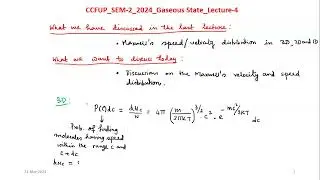 CCFUP_SEM-2_2024_Gaseous State_Lecture-4
What we have discussed in the last lecture :
• Maxwell's speed/velocity distribution in 3D, 2D and 1D
What we want to discuss today :
• Discussion on the Maxwell's velocity and speed distribution.
3D :
P(c)dc = dNc/N = 4π (m/2πKT)^3/2 · c² · e^-mc²/2KT dc
Prob. of finding
molecules having speed
within the range c and
c + dc
dNc =
1